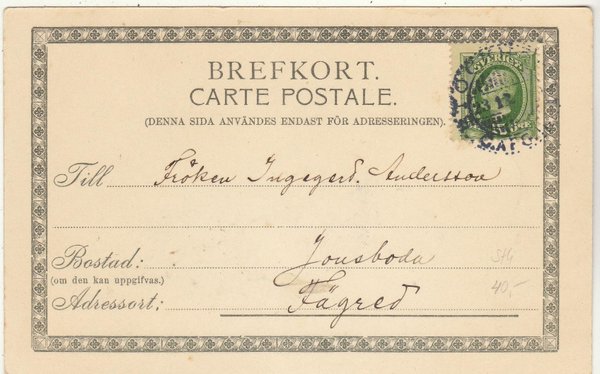 BREFKORT.
CARTE POSTALE.
(DENNA SIDA ANVÄNDES ENDAST FÖR ADRESSERINGEN).
SVERIGE
Till Fröken Ingegerd. Andersson
Bostad: Jonsboda
(om den kan uppgifvas.)
Adressort: Fägred
40,-